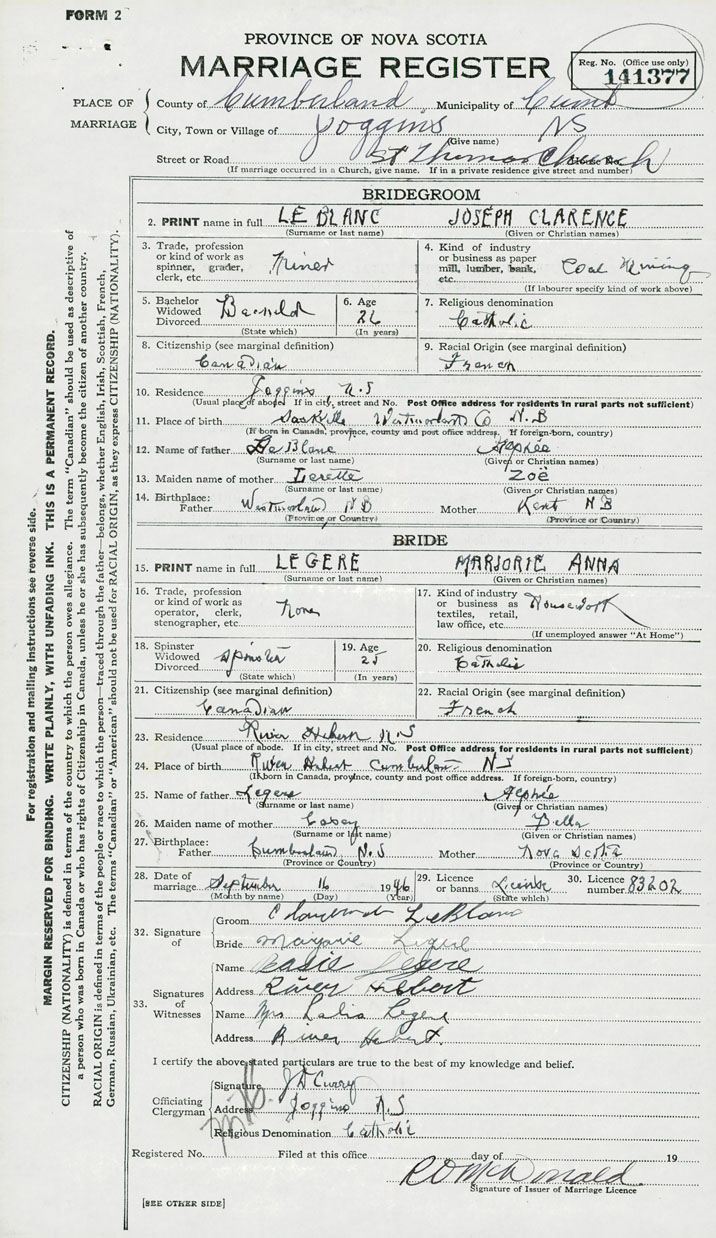 FORM 2
PROVINCE OF NOVA SCOTIA
MARRIAGE REGISTER
Reg. No. (Office use only)
141377
PLACE OF MARRIAGE
County of Cumberland Municipality of Cumb
City, Town or Village of Joggins NS
(Give name)
Street or Road St Thomas Church
(If marriage occurred in a Church, give name. If in a private residence give street and number)
BRIDEGROOM
2. PRINT name in full LE BLANC JOSEPH CLARENCE
(Surname or last name) (Given or Christian names)
3. Trade, profession or kind of work as spinner, grader, clerk, etc. Miner
4. Kind of industry or business as paper mill, lumber, bank, etc. Coal Mining
(If labourer specify kind of work above)
5. Bachelor Widowed Divorced
(State which)
6. Age 26
(In years)
7. Religious denomination
Catholic
8. Citizenship (see marginal definition)
Canadian
9. Racial Origin (see marginal definition)
French
10. Residence Joggins N.S
(Usual place of abode. If in city, street and No. Post Office address for residents in rural parts not sufficient)
11. Place of birth Sackville Westmorland Co N.B
(If born in Canada, province, county and post office address. If foreign-born, country)
12. Name of father Le Blanc Alphée
(Surname or last name) (Given or Christian names)
13. Maiden name of mother Zoë
(Surname or last name) (Given or Christian names)
14. Birthplace:
Father Westmorland N B Mother Kent N B
(Province or Country) (Province or Country)
BRIDE
15. PRINT name in full LEGERE MARJORIE ANNA
(Surname or last name) (Given or Christian names)
16. Trade, profession or kind of work as operator, clerk, stenographer, etc. None
17. Kind of industry or business as textiles, retail, law office, etc. Housework
(If unemployed answer "At Home")
18. Spinster Widowed Divorced Spinster
(State which)
19. Age 25
(In years)
20. Religious denomination
Catholic
21. Citizenship (see marginal definition)
Canadian
22. Racial Origin (see marginal definition)
French
23. Residence River Hebert N.S
(Usual place of abode. If in city, street and No. Post Office address for residents in rural parts not sufficient)
24. Place of birth River Hebert Cumberland NS
(If born in Canada, province, county and post office address. If foreign-born, country)
25. Name of father Legere Alphée
(Surname or last name) (Given or Christian names)
26. Maiden name of mother Casey Della
(Surname or last name) (Given or Christian names)
27. Birthplace:
Father Cumberland N.S Mother Nova Scotia
(Province or Country) (Province or Country)
28. Date of marriage September 16 1946
(Month by name) (Day) (Year)
29. Licence or banns License
(State which)
30. Licence number 83202
32. Signature of
Groom LeBlanc
Bride Marjorie Legere
33. Signatures of Witnesses
Name Legere
Address River Hebert
Name Mrs Legere
Address River Hebert.
I certify the above stated particulars are true to the best of my knowledge and belief.
Officiating Clergyman
Signature J D Curry
Address Joggins N.S
Religious Denomination Catholic
Registered No. Filed at this office day of 19
McDonald
Signature of Issuer of Marriage Licence
[SEE OTHER SIDE]
For registration and mailing instructions see reverse side.
MARGIN RESERVED FOR BINDING. WRITE PLAINLY, WITH UNFADING INK. THIS IS A PERMANENT RECORD.
CITIZENSHIP (NATIONALITY) is defined in terms of the country to which the person owes allegiance. The term "Canadian" should be used as descriptive of
a person who was born in Canada or who has rights of Citizenship in Canada, unless he or she has subsequently become the citizen of another country.
RACIAL ORIGIN is defined in terms of the people or race to which the person—traced through the father—belongs, whether English, Irish, Scottish, French,
German, Russian, Ukrainian, etc. The terms "Canadian" or "American" should not be used for RACIAL ORIGIN, as they express CITIZENSHIP (NATIONALITY).